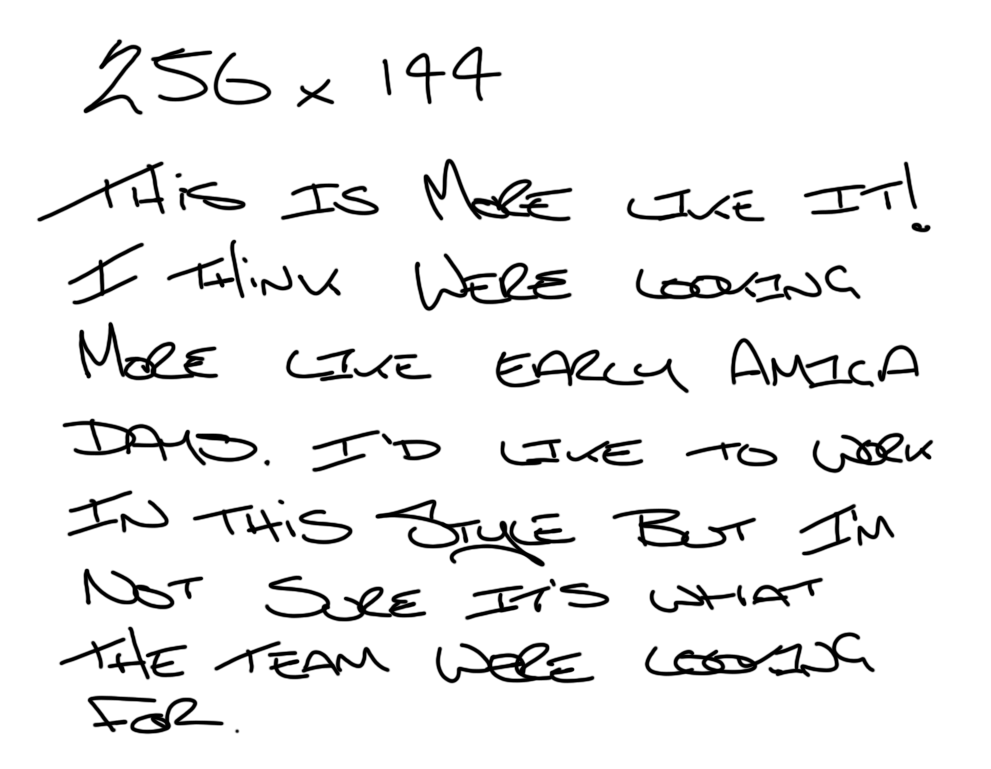 256 x 144
THiS IS MORE LIKE IT!
I THiNK WERE LOOKING
MORE LIKE EARLY AMIGA
DAYS. I'D LIKE TO WORK
IN THiS STYLE BUT I'M
NOT SURE IT'S WHAT
THE TEAM WERE LOOKING
FOR.